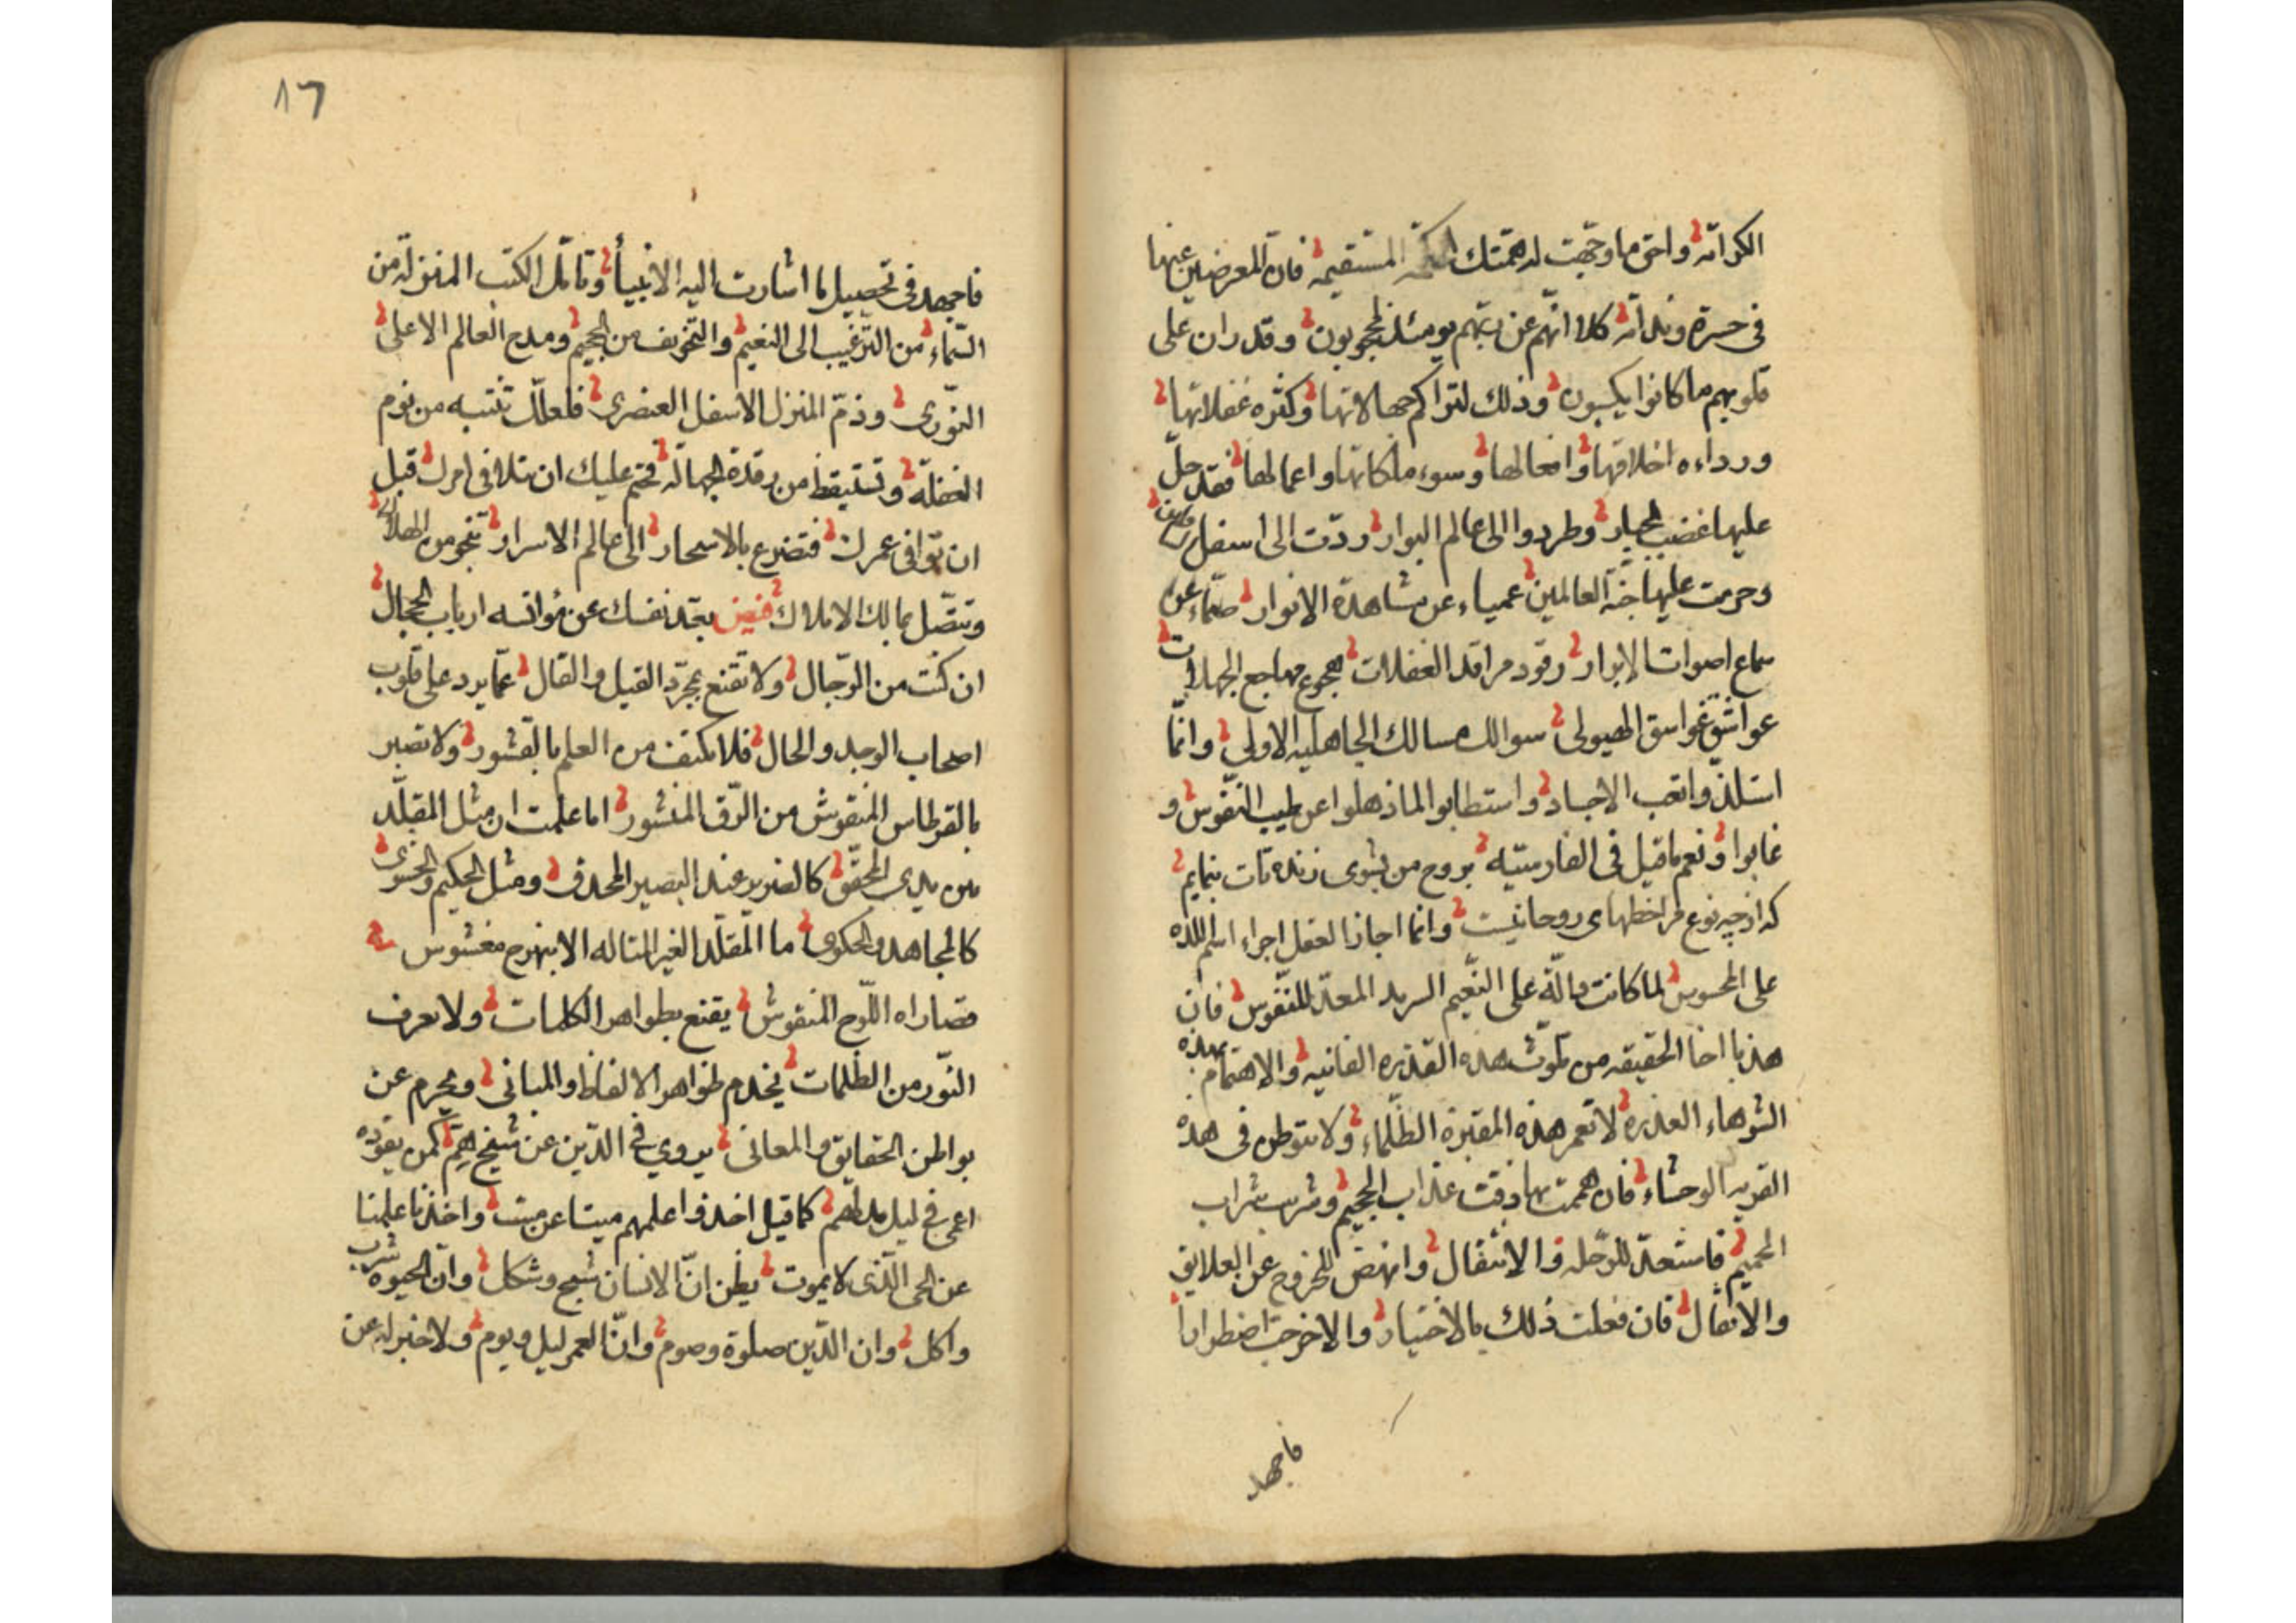 الكرامة واحق ما وجّهت له همّتك المستقيمه فان المعرضين عنها
فى حسرة وندامة كلا انّهم عن ربّهم يومئذ لمحجوبون وقد ران على
قلوبهم ما كانوا يكسبون وذلك لتراكم جهالاتها وكثره غفلاتها
ورداءه اخلاقها وافعالها وسوء ملكاتها واعمالها فقد حلّ
عليها غضب الجبار وطردوا الى عالم البوار ردّت الى اسفل سافلين
وحرمت عليها جنّة العالمين عمياء عن مشاهدة الانوار صمّاء عن
سماع اصوات الابرار رقود مراقد الغفلات هجوع مهاجع الجهالات
عواشق غواسق الهيولى سوالك مسالك الجاهليه الاولى وانّما
استلذّوا تعب الاجساد واستطابوا لما ذهلوا عن طيب النّفوس و
غابوا ونعم ما قيل فى الفارسيّه بروح من بشوى زنده تات بنمايم
كه از چه نوع مرا خطهاى روحانيست وانما اجاز العقل اجراء اسم اللذه
على المحسوس لما كانت دالّة على النّعيم السرمد المعدّ للنّفوس فان
هذبا اخا الحقيقه من تلوث هذه القذره الفانيه والاهتمام بهذه
الشوهاء العذره لا تعمر هذه المقبرة الظّلماء ولا تتوطن فى هذه
القريه الوحشاء فان هممت بها ذقت عذاب الجحيم وشربت شراب
الحميم فاستعدّ للرّحله والانتقال وانهض للخروج عن العلايق
والاثقال فان فعلت ذلك بالاختيار والا خرجت اضطرارا
فاجهد
٨٦
فاجهد فى تحصيل ما اشارت اليه الانبياء وتامّل الكتب المنزلة من
السّماء من التّرغيب الى النعيم والتّخويف من الجحيم ومدح العالم الاعلى
النّورى وذمّ المنزل الاسفل العنصرى فلعلّك تنتبه من نوم
الغفلة وتستيقظ من رقدة الجهالة فحتم عليك ان تتلافى امرك قبل
ان توافى عمرك فتضرع بالاسحار الى عالم الاسرار تنجو من الهلاك
وتتصّل بمالك الاملاك فيض بعّد نفسك عن مؤانسه ارباب الحجال
ان كنت من الرّجال ولا تقنع بمجرّد القيل والقال عمّا يرد على قلوب
اصحاب الوجد والحال فلا تكتف من العلم بالقشور ولا تصبر
بالقرطاس المنقوش من الرّق المنشور اما علمت ان مثل المقلّد
بين يدى المحقّق كالضرير عند البصير المحدق ومثل الحكيم والحشوى
كالمجاهد والحكوى ما المقلّد الغير المتاله الا بنهرج مغشوش
قصاراه اللّوح المنقوش يقنع بظواهر الكلمات ولا يعرف
النّور من الظّلمات يخدم ظواهر الالفاظ والمبانى ويحرم عن
بواطن الحقايق والمعانى يروي فى الدّين عن شيخ هِمّ كمن يقوده
اعمى فى ليل مدلهم كما قيل اخذوا علمهم ميتا عن ميت واخذنا علمنا
عن الحى الّذى لا يموت يظن انّ الانسان شبح وشكل وان الحيوه شرب
واكل وان الدّين صلوة وصوم وانّ العمر ليل ويوم ولا خبر له عن